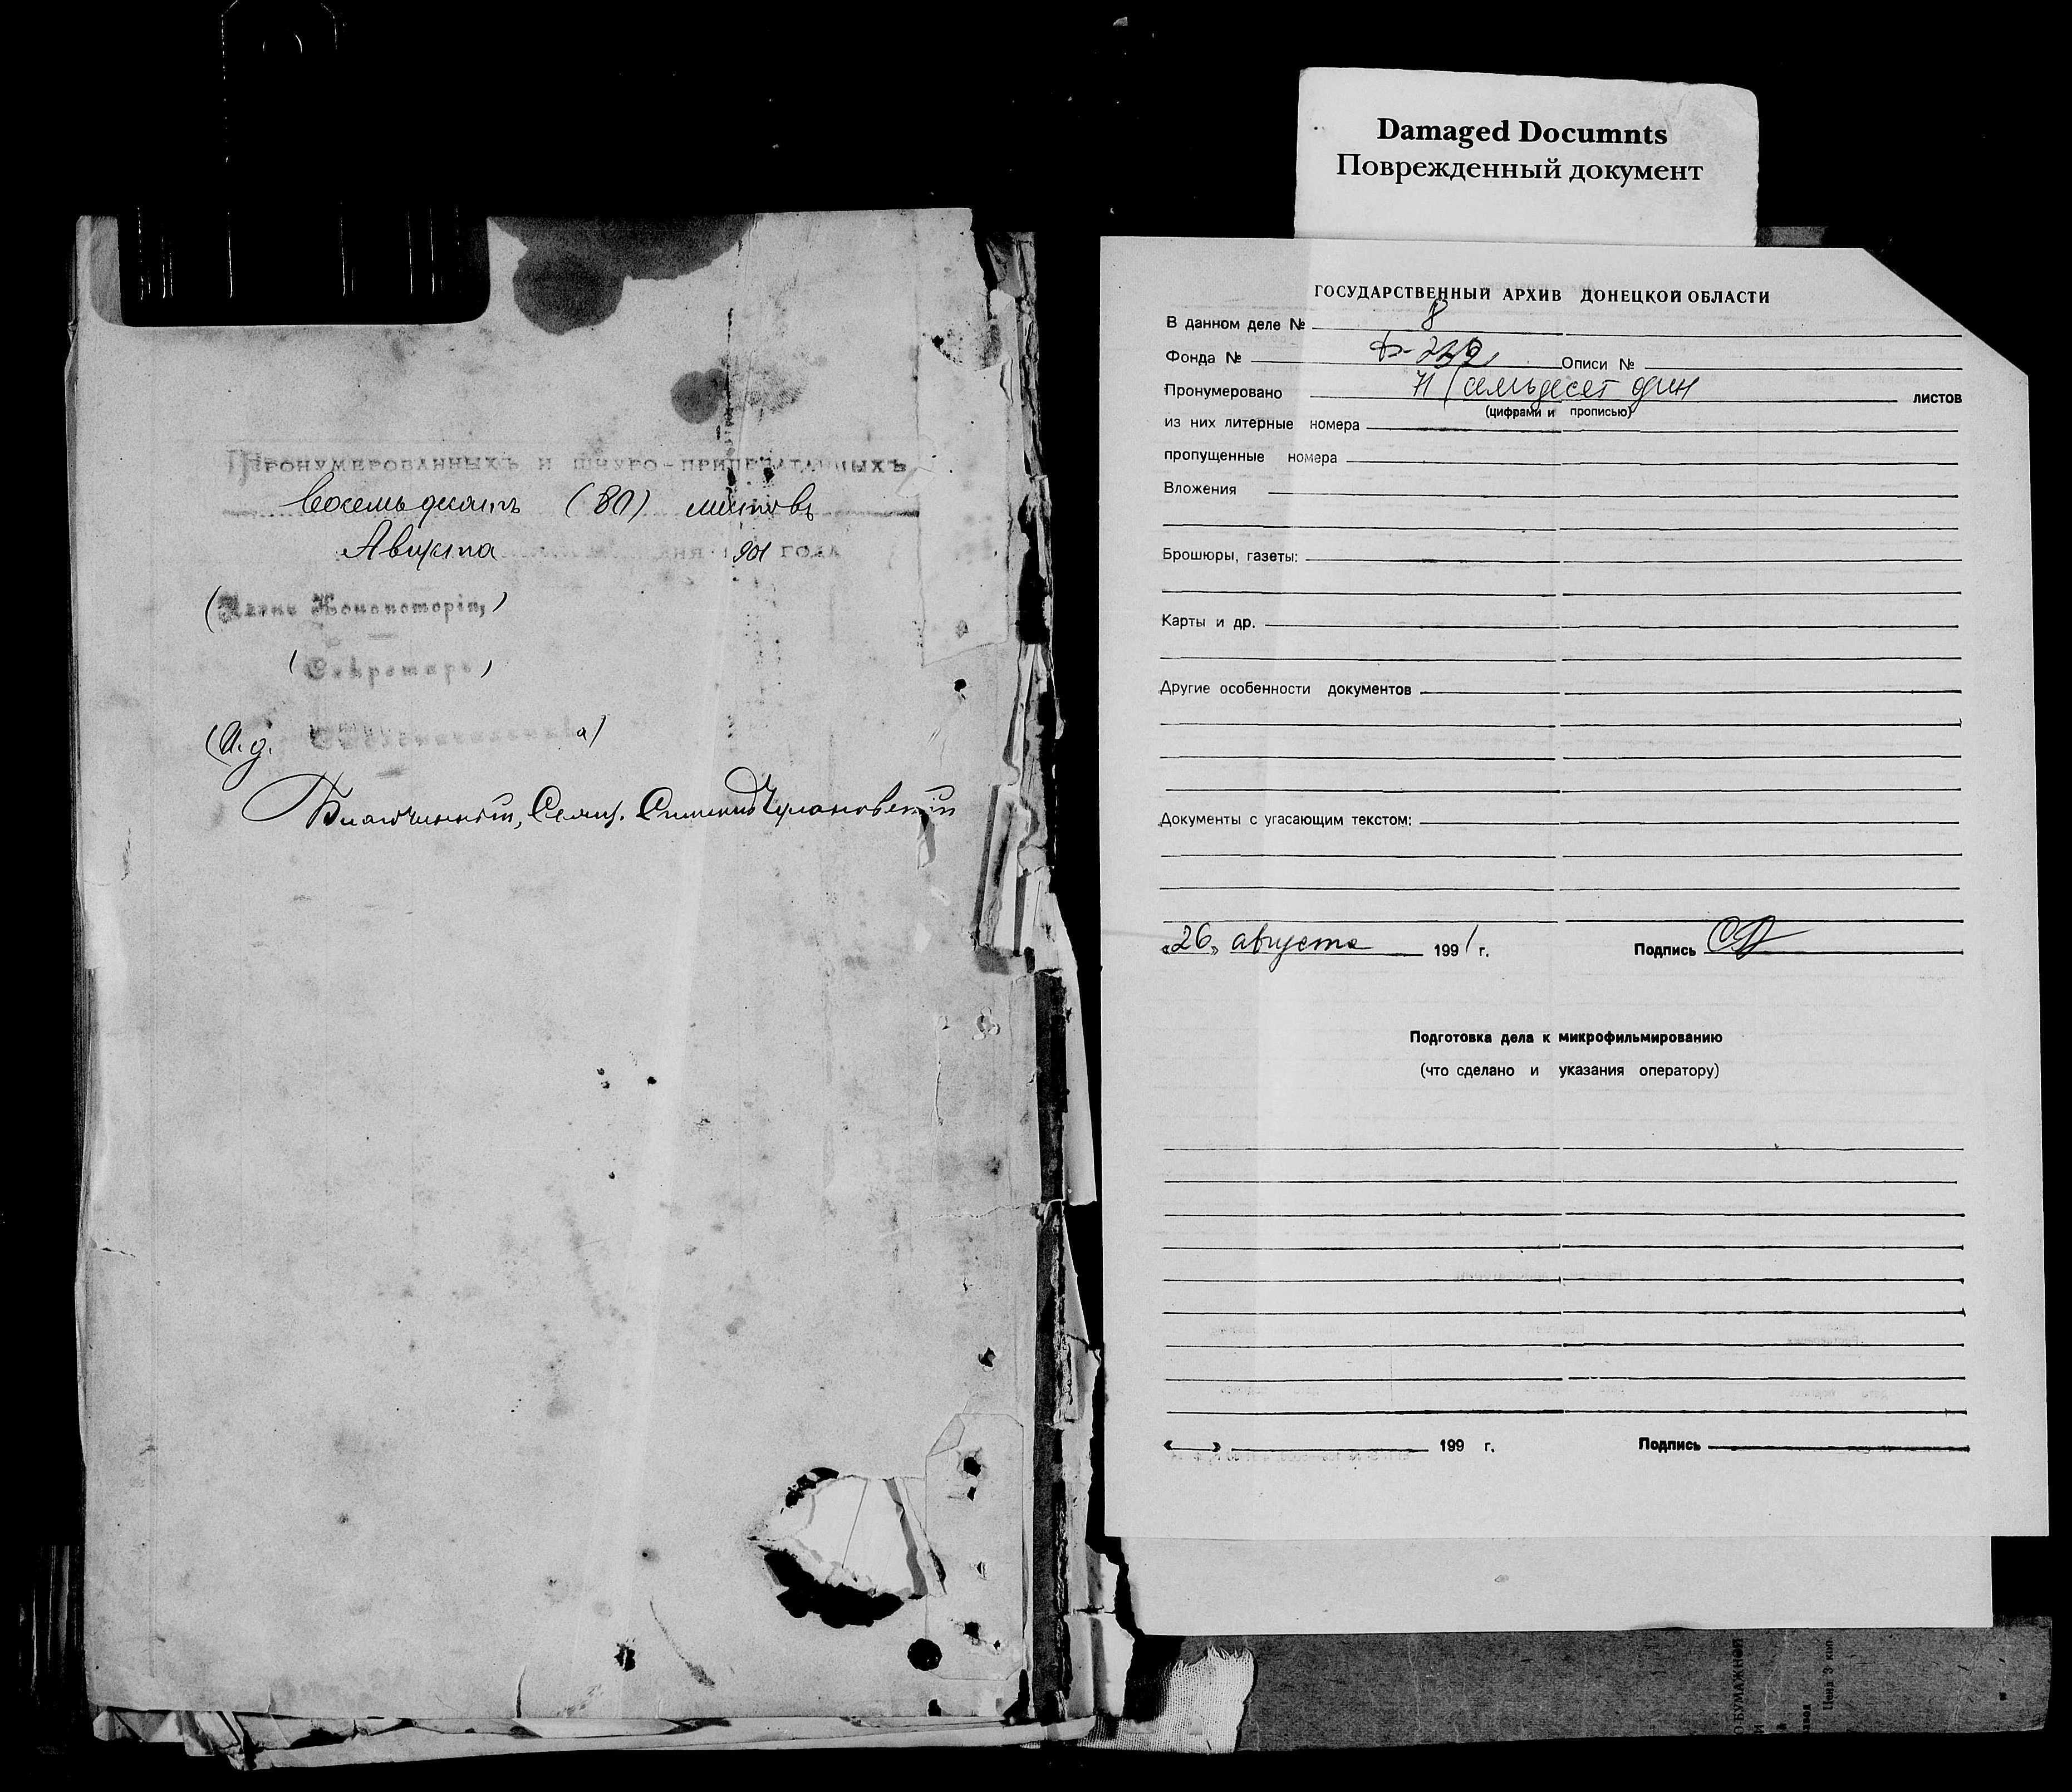 Пронумерованныхъ и шнуро-припечатанныхъ
Восемьдесятъ (80) листовъ
Августа дня 1901 года
(Членъ Консисторіи,)
(Секретарь)
(И. д. Столоначальника)
Благочинный, Свящ.
Damaged Documnts
Поврежденный документ
ГОСУДАРСТВЕННЫЙ АРХИВ ДОНЕЦКОЙ ОБЛАСТИ
В данном деле № 8
Фонда № Описи №
Пронумеровано 71 (семьдесят один листов
(цифрами и прописью)
из них литерные номера
пропущенные номера
Вложения
Брошюры, газеты:
Карты и др.
Другие особенности документов
Документы с угасающим текстом:
«26» августа 1991 г. Подпись
Подготовка дела к микрофильмированию
(что сделано и указания оператору)
« » 199 г. Подпись
Цена 3 коп.